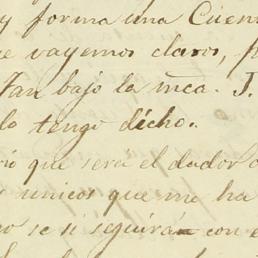 y forma una Cuen
e vayemos claros, p
Tan bajo la mca. J.
lo tengo dicho.
rio que será el dador
unicos que me ha
o se si seguirán con e